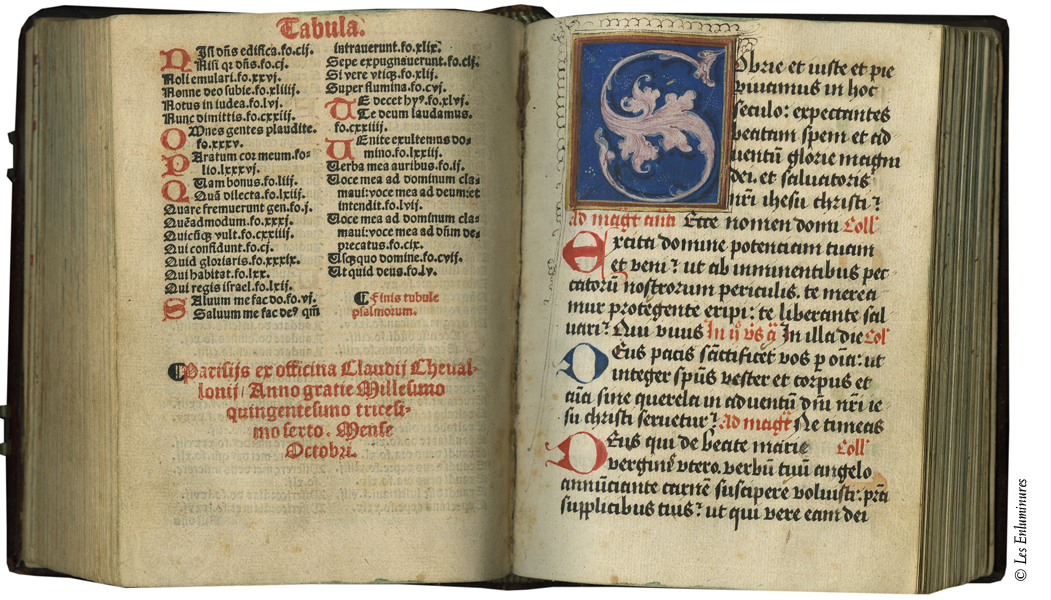 Tabula.
Nisi dñs edifica.fo.cij.
Nisi qr dñs.fo.cj.
Noli emulari.fo.xxvj.
Nonne deo subie.fo.xliiij.
Notus in iudea.fo.lvj.
Nunc dimittis.fo.cxxiij.
Omnes gentes plaudite.
fo.xxxv.
Paratum cor meum.fo-
lio.lxxxvj.
Quam bonus.fo.liij.
Quā dilecta.fo.lxiij.
Quare fremuerunt gen.fo.j.
Quēadmodum.fo.xxxj.
Quicūqꝫ vult.fo.cxxiiij.
Qui confidunt.fo.cj.
Quid gloriaris.fo.xxxix.
Qui habitat.fo.lxx.
Qui regis israel.fo.lxij.
Saluum me fac do.fo.vj.
Saluum me fac deꝰ qm̄
intrauerunt.fo.xlix.
Sepe expugnauerunt.fo.cij.
Si vere vtiqꝫ.fo.xlij.
Super flumina.fo.cvj.
Te decet hyꝰ.fo.xlvj.
Te deum laudamus.
fo.cxxiiij.
Uenite exultemus do-
mino.fo.lxxiij.
Uerba mea auribus.fo.ij.
Uoce mea ad dominum cla-
maui:voce mea ad deum:et
intendit.fo.lvij.
Uoce mea ad dominum cla-
maui:voce mea ad dñm de-
precatus.fo.cix.
Usqꝫquo domine.fo.cvij.
Ut quid deus.fo.lv.
¶ Finis tabule
psalmorum.
¶Parisijs ex officina Claudij Cheual-
lonij/Anno gratie Millesimo
quingentesimo tricesi-
mo sexto. Mense
Octobri.
Sobrie et iuste et pie
viuamus in hoc
seculo: expectantes
beatam spem et ad
uentū glorie magni
dei, et saluatoris
nr̄i ihesu christi?
ad magt̄ an̄a Ecce nomen domi Coll'
Excita domine potenciam tuam
et veni? ut ab imminentibus pec
catorū nostrorum periculis, te merea
mur protegente eripi: te liberante sal
uari? Qui viuis In illa die Col'
Deus pacis sāctificet vos p oīa: ut
integer spūs vester et corpus et
aīa sine querela in aduentū dnī nr̄i ie
su christi seruetur? Ad magt̄ Ne timeas
Deus qui de beate marie Coll'
virginis vtero, verbū tuū angelo
annūciante carnē suscipere voluisti: pr̄a
supplicibus tuis? ut qui vere eam dei
© Les Enluminures